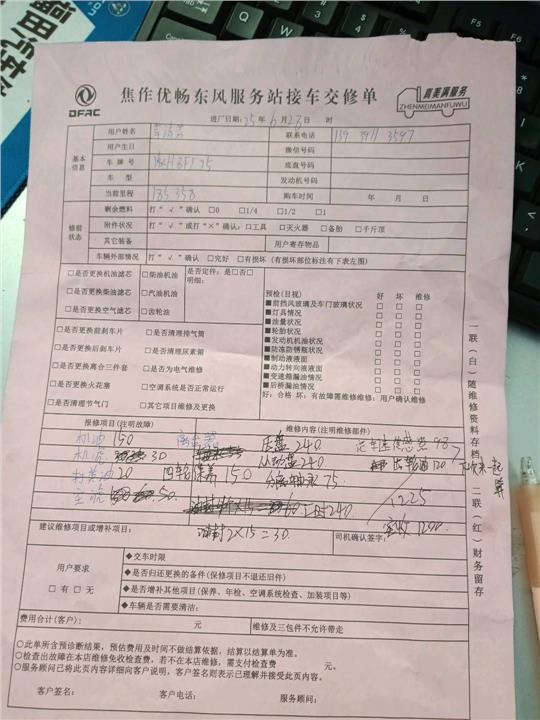 DFAC
焦作优畅东风服务站接车交修单
真美满服务
ZHENMEIMANFUWU
进厂日期:25年6月28日 时
基本信息
用户姓名 联系电话 139 3911 3547
用户生日 微信号码
车牌号 底盘号码
车型 发动机号码
当前里程 185358 购车时间 年 月 日
修前状态
剩余燃料 打“√”确认 □0 □1/4 □1/2 □1
附件状况 打“√”或打“×”确认:□工具 □灭火器 □备胎 □千斤顶
其它装备 用户寄存物品
车辆外部情况 打“√”确认 □完好 □有损坏(有损坏部位标注有下表左图)
□是否更换机油滤芯 □柴油机油 是否定件:是□否□
明细:
□是否更换柴油滤芯 □汽油机油
□是否更换空气滤芯 □齿轮油
□是否更换前刹车片 □是否清理排气筒
□是否更换后刹车片 □是否清理尿素箱
□是否更换离合三件套 □是否为电气维修
□是否更换火花塞 □空调系统是否正常运行
□是否清理节气门 □其它项目维修及更换
预检(目视) 好 坏 维修
■前挡风玻璃及车门玻璃状况 □ □ □
■灯具情况 □ □ □
■油量状况 □ □ □
■轮胎状况 □ □ □
■发动机机油状况 □ □ □
■防冻防锈瓶状况 □ □ □
■制动液液面 □ □ □
■动力转向液液面 □ □ □
■变速箱漏油情况 □ □ □
■后桥漏油情况 □ □ □
好:合格 坏:有故障需维修维修:用户确认维修
报修项目(注明故障) 维修内容(注明维修部件)
机油150 离合器 压盘240 98
机滤 30 从动盘240 齿轮油120
打黄油20 四轮保养150 分离轴承75
50 工时240 1225
实收1200
建议维修项目或增补项目: 2×15=30 司机确认签字:
用户要求
□有 □无
◆交车时限
◆是否归还更换的备件(保修项目不退还旧件)
◆是否增补其他项目(保养、年检、空调系统检查、加装项目等)
◆车辆是否需要清洁:
费用合计(客户): 元 维修及三包件不允许带走
○此单所含预诊断结果,预估费用及时间不做结算依据,结算以结算单为准。
○检查出故障在本店维修免收检查费,若不在本店维修,需支付检查费 元。
○服务顾问已将此页内容详细向客户说明,客户签名则表示已理解并接受此页内容。
客户签名: 客户电话: 服务顾问:
一联(白)随维修资料存档 二联(红)财务留存